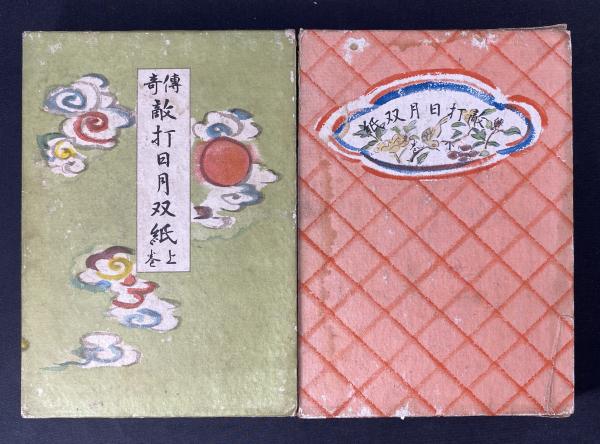 傳奇
敵打日月双紙
上巻
敵打日月双紙
下巻